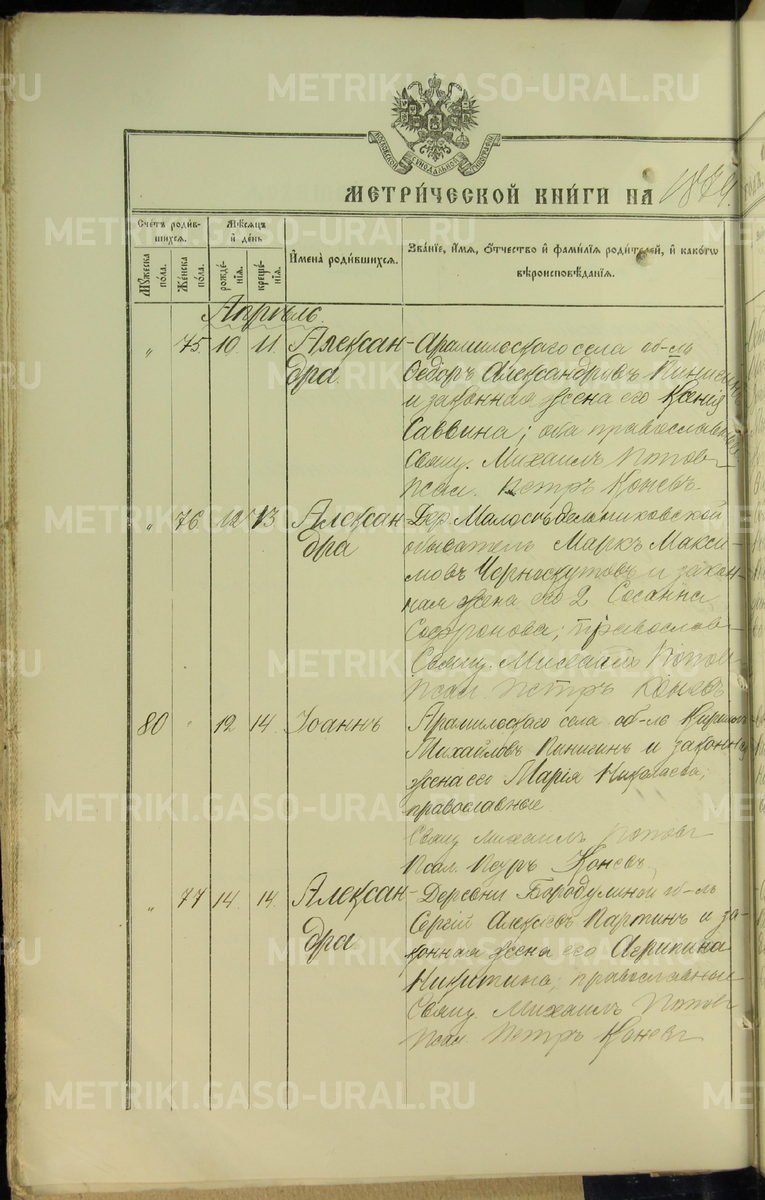 METRIKI.GASO-URAL.RU
МОСКОВСКОЙ СѴНОДАЛЬНОЙ ТѴПОГРАФІИ
МЕТРИ́ЧЕСКОЙ КНИ́ГИ НА 1879
Сче́тъ роди́в-
шихся.
Мѣ́сяцъ
и҆ де́нь
И҆мена̀ роди́вшихся.
Зва́нїе, и҆́мя, ѻ҆́тчество и҆ фами́лїя роди́телей, и҆ како́гѡ
вѣроисповѣ́данїя.
Мꙋ́жеска по́ла.
Же́нска по́ла.
рожде́-нїя.
креще́-нїя.
Апрѣль.
„ 75 10 11 Алексан-
дра.
Арамильскаго села об-ль
Ѳедоръ Александровъ Кинисинъ
и законная жена его Ксенія
Саввина; оба православные
Свящ. Михаилъ Поповъ
Псал. Петръ Коневъ
„ 76 12 13 Алексан
дра
Дер. Малосѣдельниковской
обыватель Маркъ Макси-
мовъ Черноскутовъ и закон-
ная жена его 2 Сосанна
Софронова; православ-
Свящ. Михаилъ Поповъ
Псал. Петръ Коневъ
80 „ 12 14 Іоаннъ
Арамильскаго села об-ль Кирилъ
Михайловъ Кинисинъ и законная
жена его Марія Николаева;
православные.
Свящ Михаилъ Поповъ
Псал. Петръ Коневъ
„ 77 14 14 Алексан-
дра
Деревни Бородулиной об-ль
Сергій Алексѣевъ Партинъ и за-
конная жена его Агрипина
Никитина; православные
Свящ. Михаилъ Поповъ
Псал. Петръ Коневъ